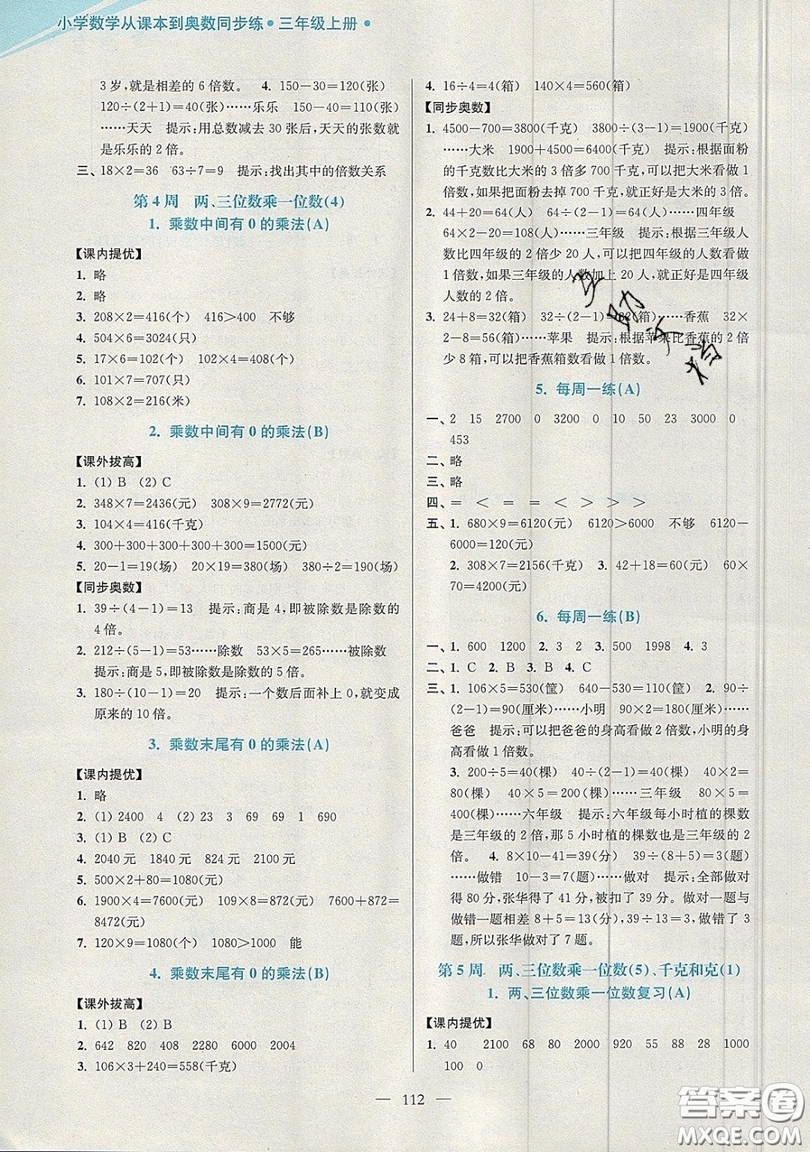 小学数学从课本到奥数同步练•三年级上册•
3岁,就是相差的6倍数。 4. 150-30=120(张)
120÷(2+1)=40(张)……乐乐 150-40=110(张)
……天天 提示:用总数减去30张后,天天的张数就
是乐乐的2倍。
三、18×2=36 63÷7=9 提示:找出其中的倍数关系
第4周 两、三位数乘一位数(4)
1. 乘数中间有0的乘法(A)
【课内提优】
1. 略
2. 略
3. 208×2=416(个) 416>400 不够
4. 504×6=3024(只)
5. 17×6=102(个) 102×4=408(个)
6. 101×7=707(只)
7. 108×2=216(米)
2. 乘数中间有0的乘法(B)
【课外拔高】
1. (1) B (2) C
2. 348×7=2436(元) 308×9=2772(元)
3. 104×4=416(千克)
4. 300+300+300+300+300=1500(元)
5. 20-1=19(场) 20×19=380(场) 380÷2=190(场)
【同步奥数】
1. 39÷(4-1)=13 提示:商是4,即被除数是除数的
4倍。
2. 212÷(5-1)=53……除数 53×5=265……被除数
提示:商是5,即被除数是除数的5倍。
3. 180÷(10-1)=20 提示:一个数后面补上0,就变成
原来的10倍。
3. 乘数末尾有0的乘法(A)
【课内提优】
1. 略
2. (1) 2400 4 (2) 23 3 69 69 1 690
3. (1) B (2) C
4. 2040元 1840元 824元 2100元
5. 500×2+80=1080(元)
6. 1900×4=7600(元) 109×8=872(元) 7600+872=
8472(元)
7. 120×9=1080(个) 1080>1000 能
4. 乘数末尾有0的乘法(B)
【课外拔高】
1. (1) B (2) B
2. 642 820 408 2280 6000 2004
3. 106×3+240=558(千克)
4. 16÷4=4(箱) 140×4=560(箱)
【同步奥数】
1. 4500-700=3800(千克) 3800÷(3-1)=1900(千克)
……大米 1900+4500=6400(千克) 提示:根据面粉
的千克数比大米的3倍多700千克,可以把大米看做1
倍数,如果把面粉去掉700千克,就正好是大米的3倍。
2. 44+20=64(人) 64÷(2-1)=64(人)……四年级
64×2-20=108(人)……三年级 提示:根据三年级人
数比四年级的2倍少20人,可以把四年级的人数看做
1倍数,如果三年级的人数加上20人,就正好是四年级
人数的2倍。
3. 24+8=32(箱) 32÷(2-1)=32(箱)……香蕉 32×
2-8=56(箱)……苹果 提示:根据苹果比香蕉的2倍
少8箱,可以把香蕉箱数看做1倍数。
5. 每周一练(A)
一、2 15 2700 0 3200 0 10 50 23 3000 0
453
二、略
三、略
四、= < = = < > > >
五、1. 680×9=6120(元) 6120>6000 不够 6120-
6000=120(元)
2. 308×7=2156(千克) 3. 42+18=60(元) 60×
70=4200(元)
6. 每周一练(B)
一、1. 600 1200 2. 3 2 3. 500 1998 4. 3
二、1. C 2. B 3. B 4. C
三、1. 106×5=530(筐) 640-530=110(筐) 2. 90÷
(2-1)=90(厘米)……小明 90×2=180(厘米)……
爸爸 提示:可以把爸爸的身高看做2倍数,小明的身
高看做1倍数。
3. 200÷5=40(棵) 40÷(2-1)=40(棵) 40×2=
80(棵) 40×5=200(棵)……三年级 80×5=
400(棵)……六年级 提示:六年级每小时植的棵数
是三年级的2倍,那5小时植的棵数也是三年级的2
倍。 4. 8×10-41=39(分) 39÷(8+5)=3(题)
……做错 10-3=7(题)……做对 提示:全部做对
得80分,张华得了41分,被扣了39分。做对一题与
做错一题相差8+5=13(分),39÷13=3,做错了3
题,所以张华做对了7题。
第5周 两、三位数乘一位数(5)、千克和克(1)
1. 两、三位数乘一位数复习(A)
【课内提优】
1. 40 2100 68 80 2000 920 55 88 28 1000
100 0
— 112 —
答案圈
MXQE.COM